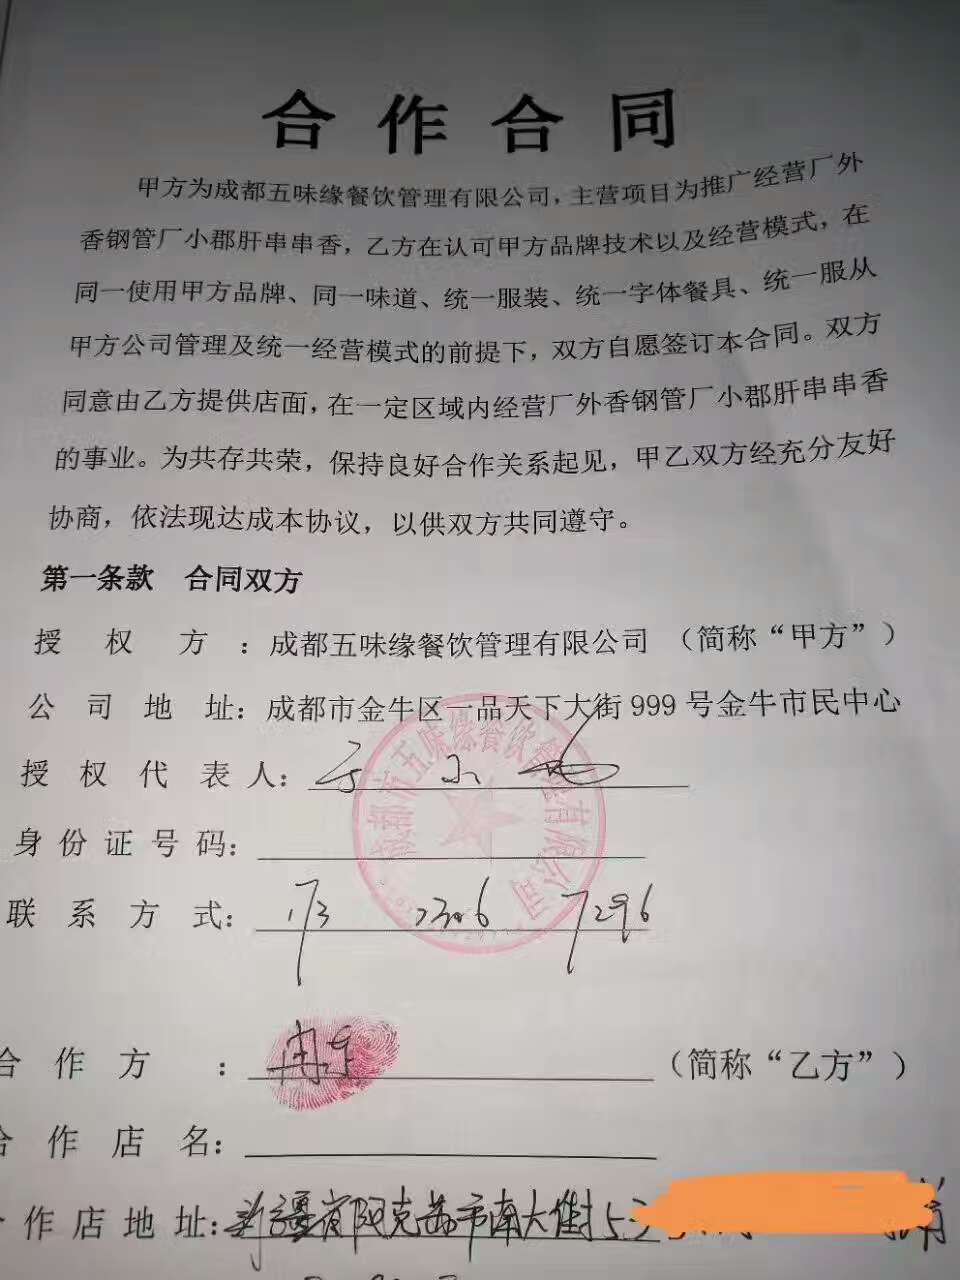 合作合同
甲方为成都五味缘餐饮管理有限公司，主营项目为推广经营厂外
香钢管厂小郡肝串串香，乙方在认可甲方品牌技术以及经营模式，在
同一使用甲方品牌、同一味道、统一服装、统一字体餐具、统一服从
甲方公司管理及统一经营模式的前提下，双方自愿签订本合同。双方
同意由乙方提供店面，在一定区域内经营厂外香钢管厂小郡肝串串香
的事业。为共存共荣，保持良好合作关系起见，甲乙双方经充分友好
协商，依法现达成本协议，以供双方共同遵守。
第一条款 合同双方
授权方：成都五味缘餐饮管理有限公司（简称“甲方”）
公司地址：成都市金牛区一品天下大街999号金牛市民中心
授权代表人：
成都市五味缘餐饮管理有限公司
身份证号码：
联系方式：173 2306 7296
合作方：冉（简称“乙方”）
合作店名：
合作店地址：新疆省阿克苏市南大街